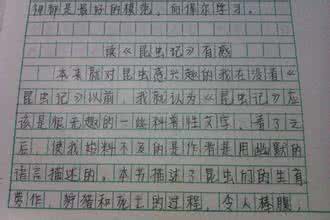 神都是最好的模范，向得尔学习。
读《昆虫记》有感
本来就对昆虫感兴趣的我在没看《
昆虫记》以前，我就认为《昆虫记》应
该是很无趣的一些科普性文字，看了之
后，使我始料不及的是作者是用幽默的
语言描述的。本书描述了昆虫们的生育
劳作、狩猎和死亡的过程，令人捧腹，